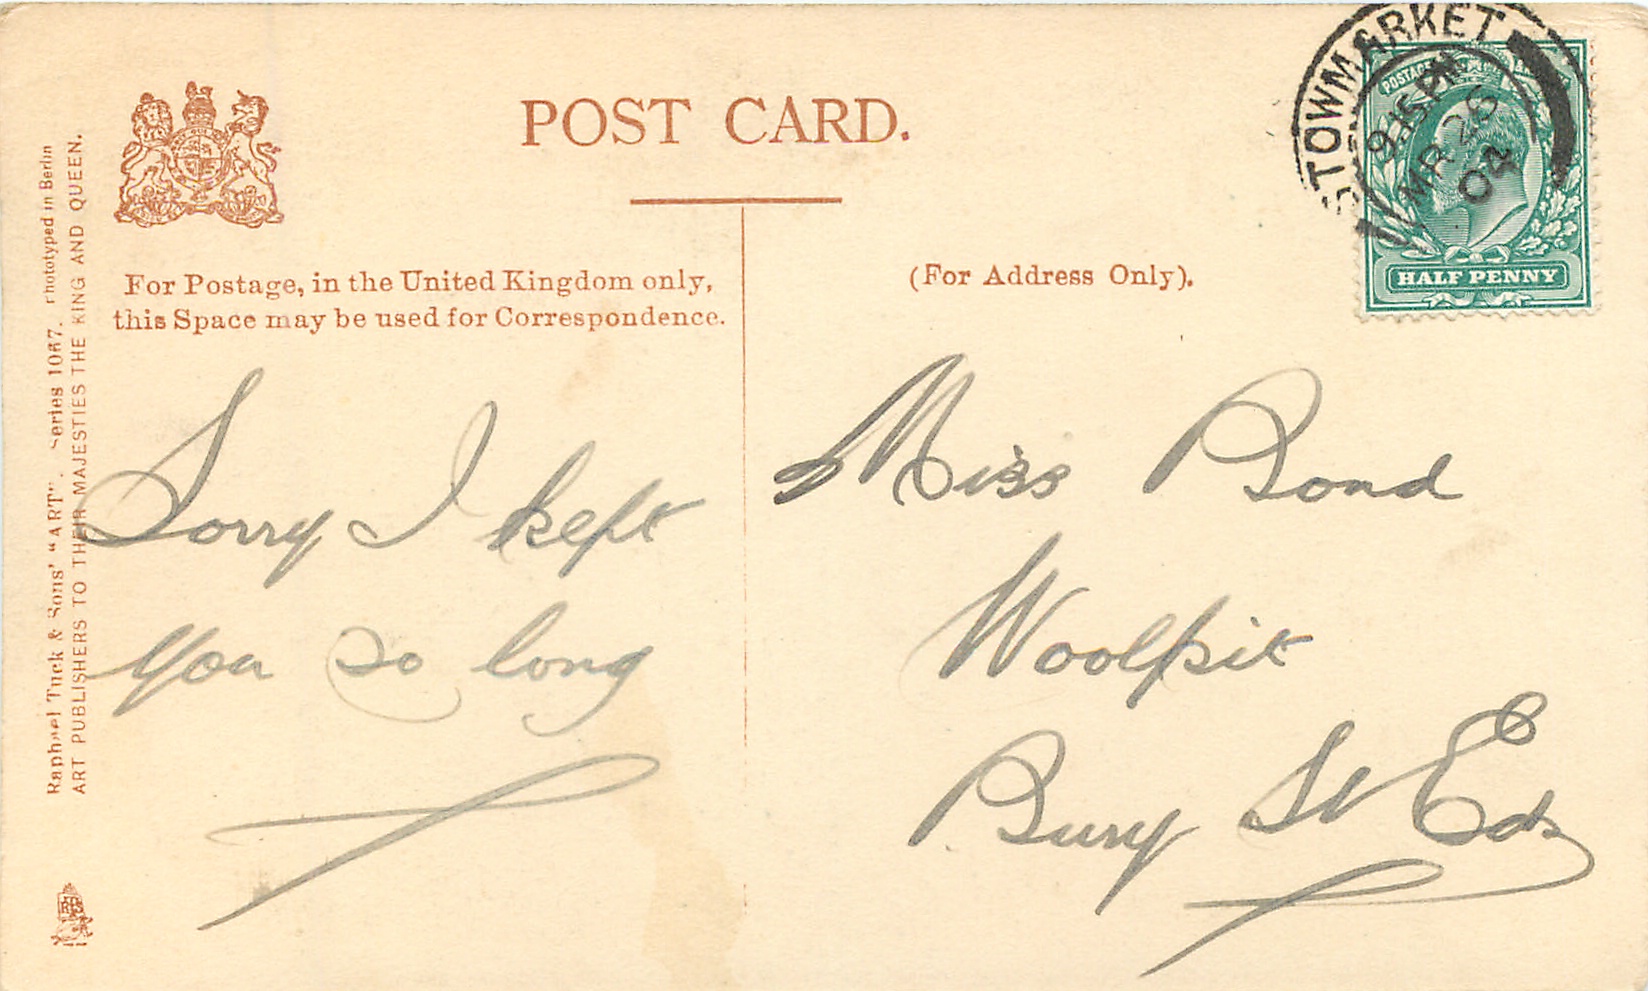 POST CARD.
For Postage, in the United Kingdom only,
this Space may be used for Correspondence.
(For Address Only).
STOWMARKET
9.15 PM
MR 26
04
HALF PENNY
Sorry I kept
you so long
Miss Bond
Woolpit
Bury St Eds
Raphael Tuck & Sons' "ART". Series 1067. Phototyped in Berlin
ART PUBLISHERS TO THEIR MAJESTIES THE KING AND QUEEN.